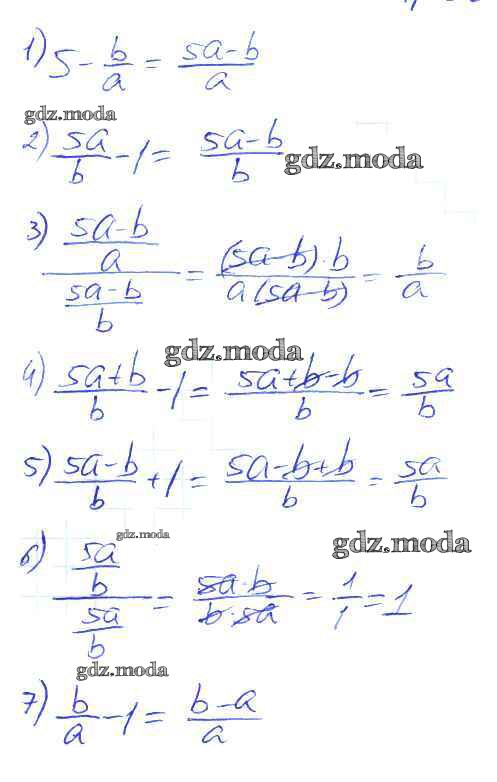 1) 5 - b/a = (5a-b)/a
gdz.moda
2) 5a/b - 1 = (5a-b)/b
gdz.moda
3) ((5a-b)/a)/((5a-b)/b) = ((5a-b)·b)/(a(5a-b)) = b/a
gdz.moda
4) (5a+b)/b - 1 = (5a+b-b)/b = 5a/b
5) (5a-b)/b + 1 = (5a-b+b)/b = 5a/b
gdz.moda
gdz.moda
6) (5a/b)/(5a/b) = (5a·b)/(b·5a) = 1/1 = 1
gdz.moda
7) b/a - 1 = (b-a)/a